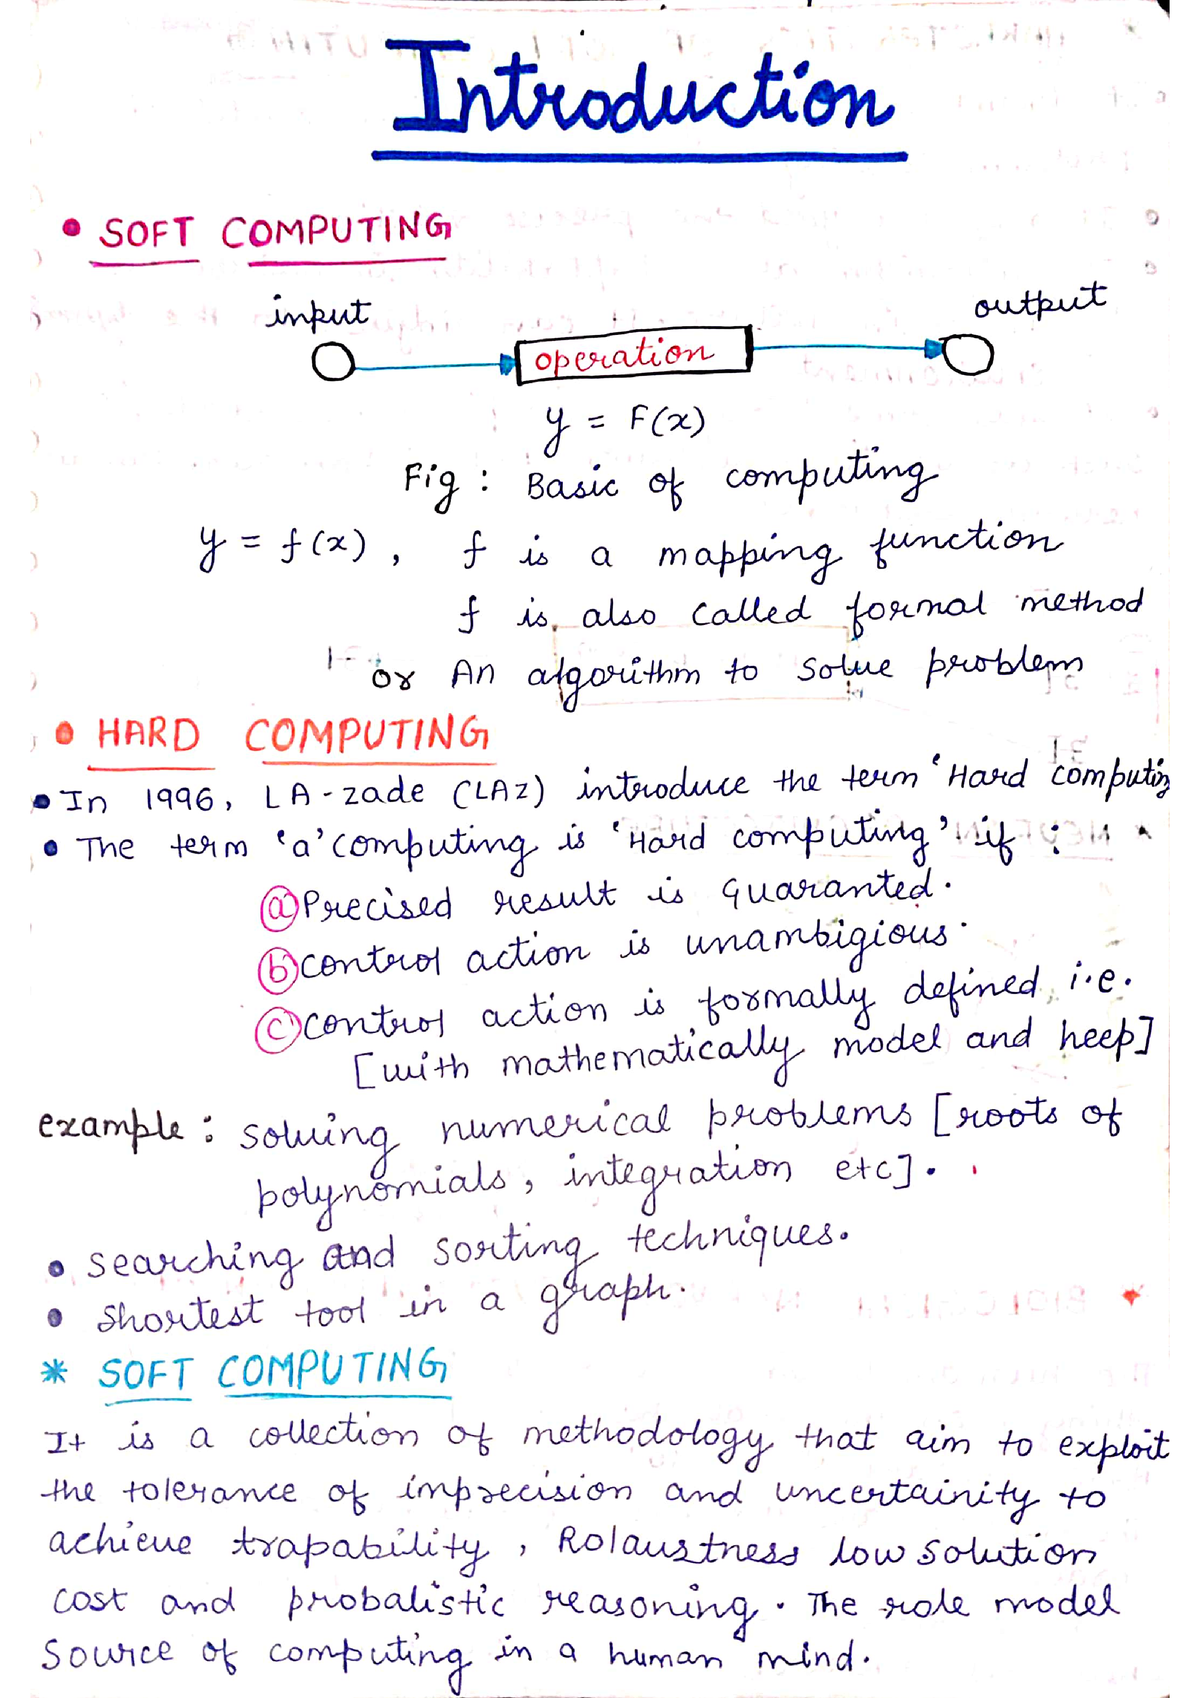 Introduction
• SOFT COMPUTING
input
output
operation
y = F(x)
Fig : Basic of computing
y = f(x) , f is a mapping function
f is also called formal method
or An algorithm to solve problem
• HARD COMPUTING
• In 1996, LA-zade (LAZ) introduce the term 'Hard computing
• The term 'a' computing is 'Hard computing' if :
ⓐ Precised result is guaranted.
ⓑ control action is unambigious.
ⓒ control action is formally defined, i.e.
[with mathematically model and heep]
example : solving numerical problems [roots of
polynomials, integration etc].
• searching and sorting techniques.
• shortest tool in a graph.
* SOFT COMPUTING
It is a collection of methodology that aim to exploit
the tolerance of imprecision and uncertainity to
achieve trapability, Rolaustness low solution
cost and probalistic reasoning. The role model
source of computing in a human mind.